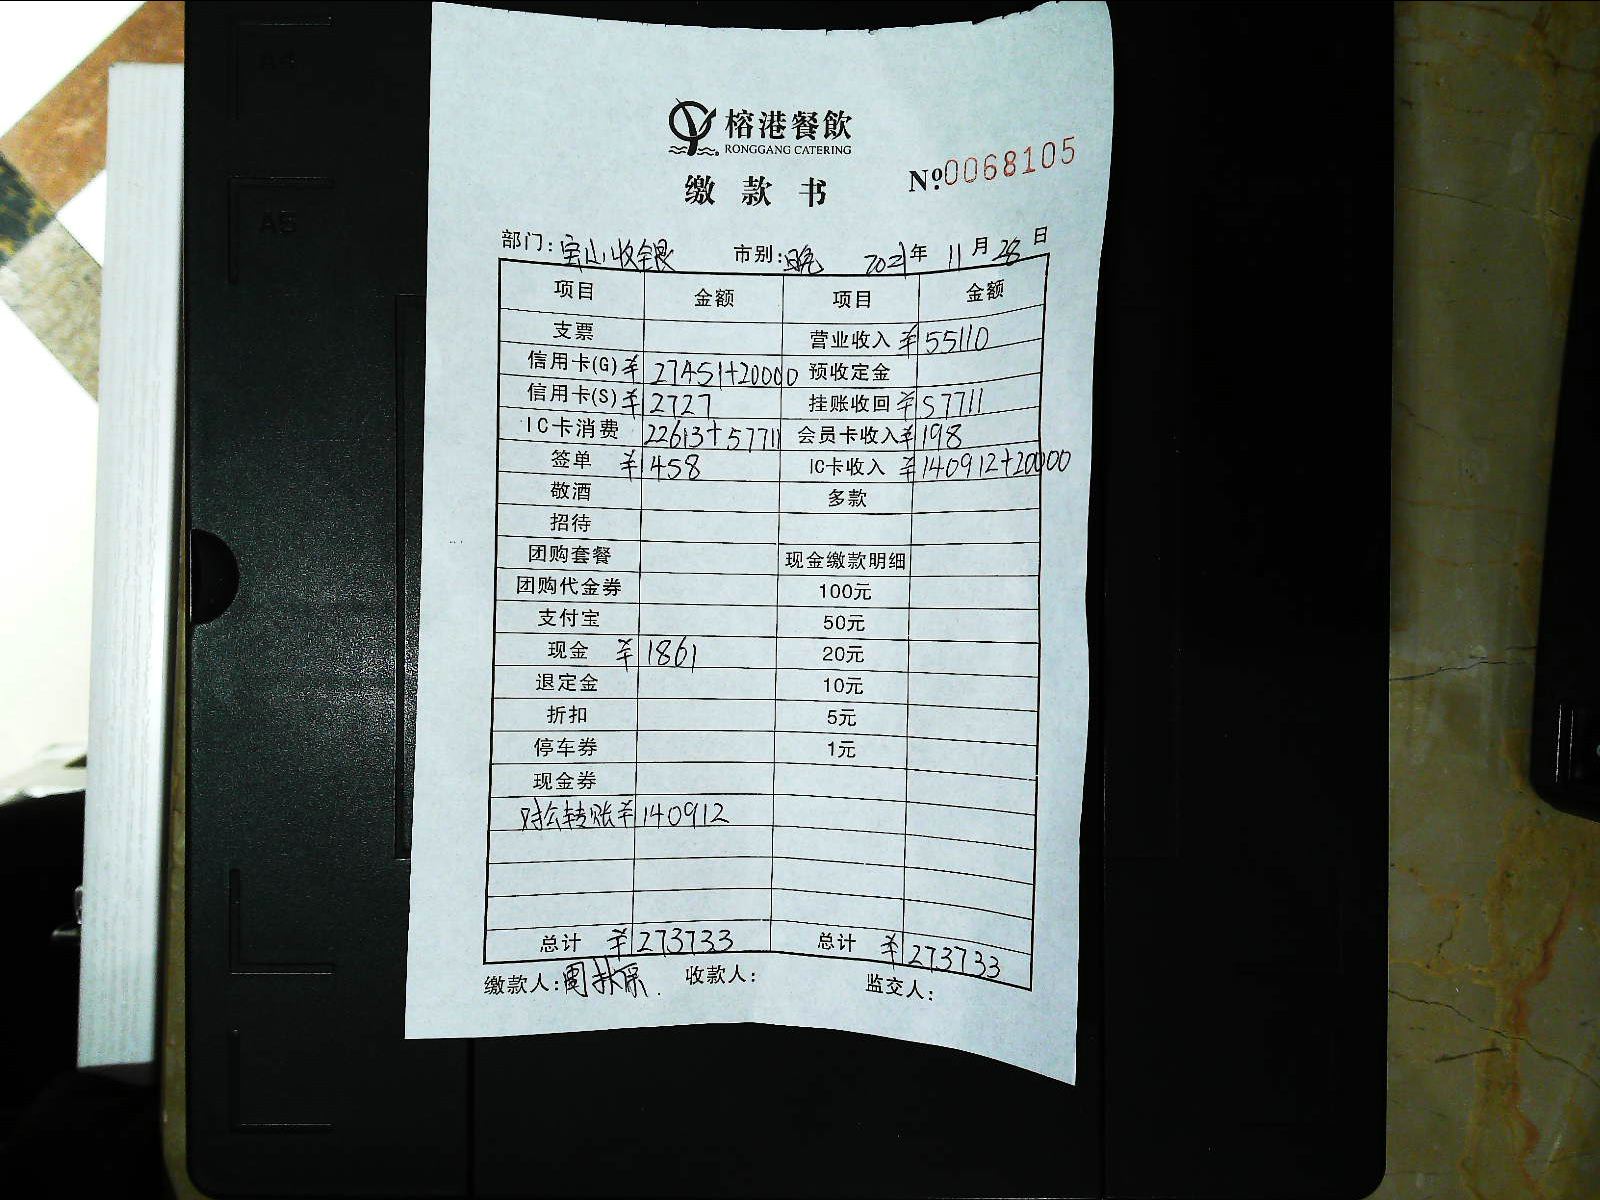 榕港餐飲
RONGGANG CATERING
缴款书
№0068105
部门:宝山收银 市别:晚 2021年11月28日
项目 金额 项目 金额
支票 营业收入 ¥55110
信用卡(G) ¥27451+20000 预收定金
信用卡(S) ¥2727 挂账收回 ¥57711
IC卡消费 22613+57711 会员卡收入 ¥198
签单 ¥1458 IC卡收入 ¥140912+20000
敬酒 多款
招待
团购套餐 现金缴款明细
团购代金券 100元
支付宝 50元
现金 ¥1861 20元
退定金 10元
折扣 5元
停车券 1元
现金券
对公转账 ¥140912
总计 ¥273733 总计 ¥273733
缴款人: 收款人: 监交人:
A5